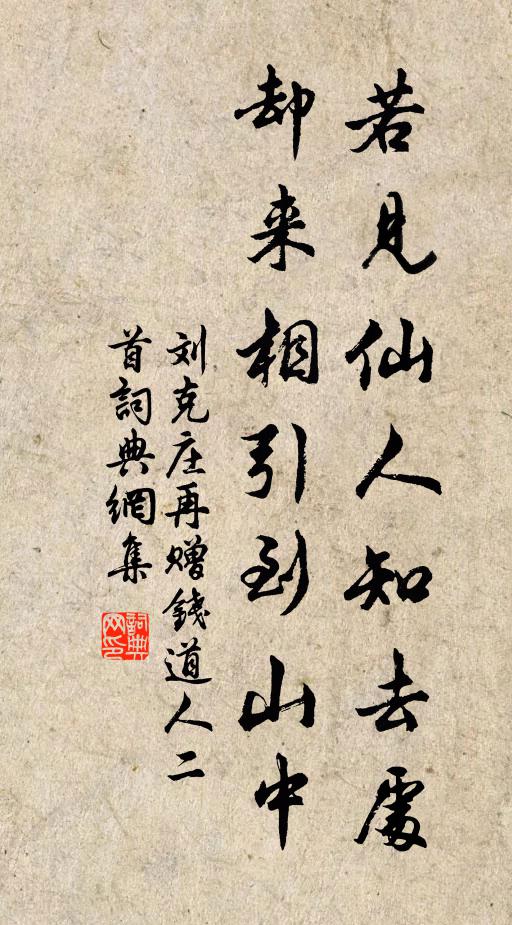 若見仙人知去處
却来相引到山中
刘克庄再赠錢道人二
首詞典網集
詞典
网印